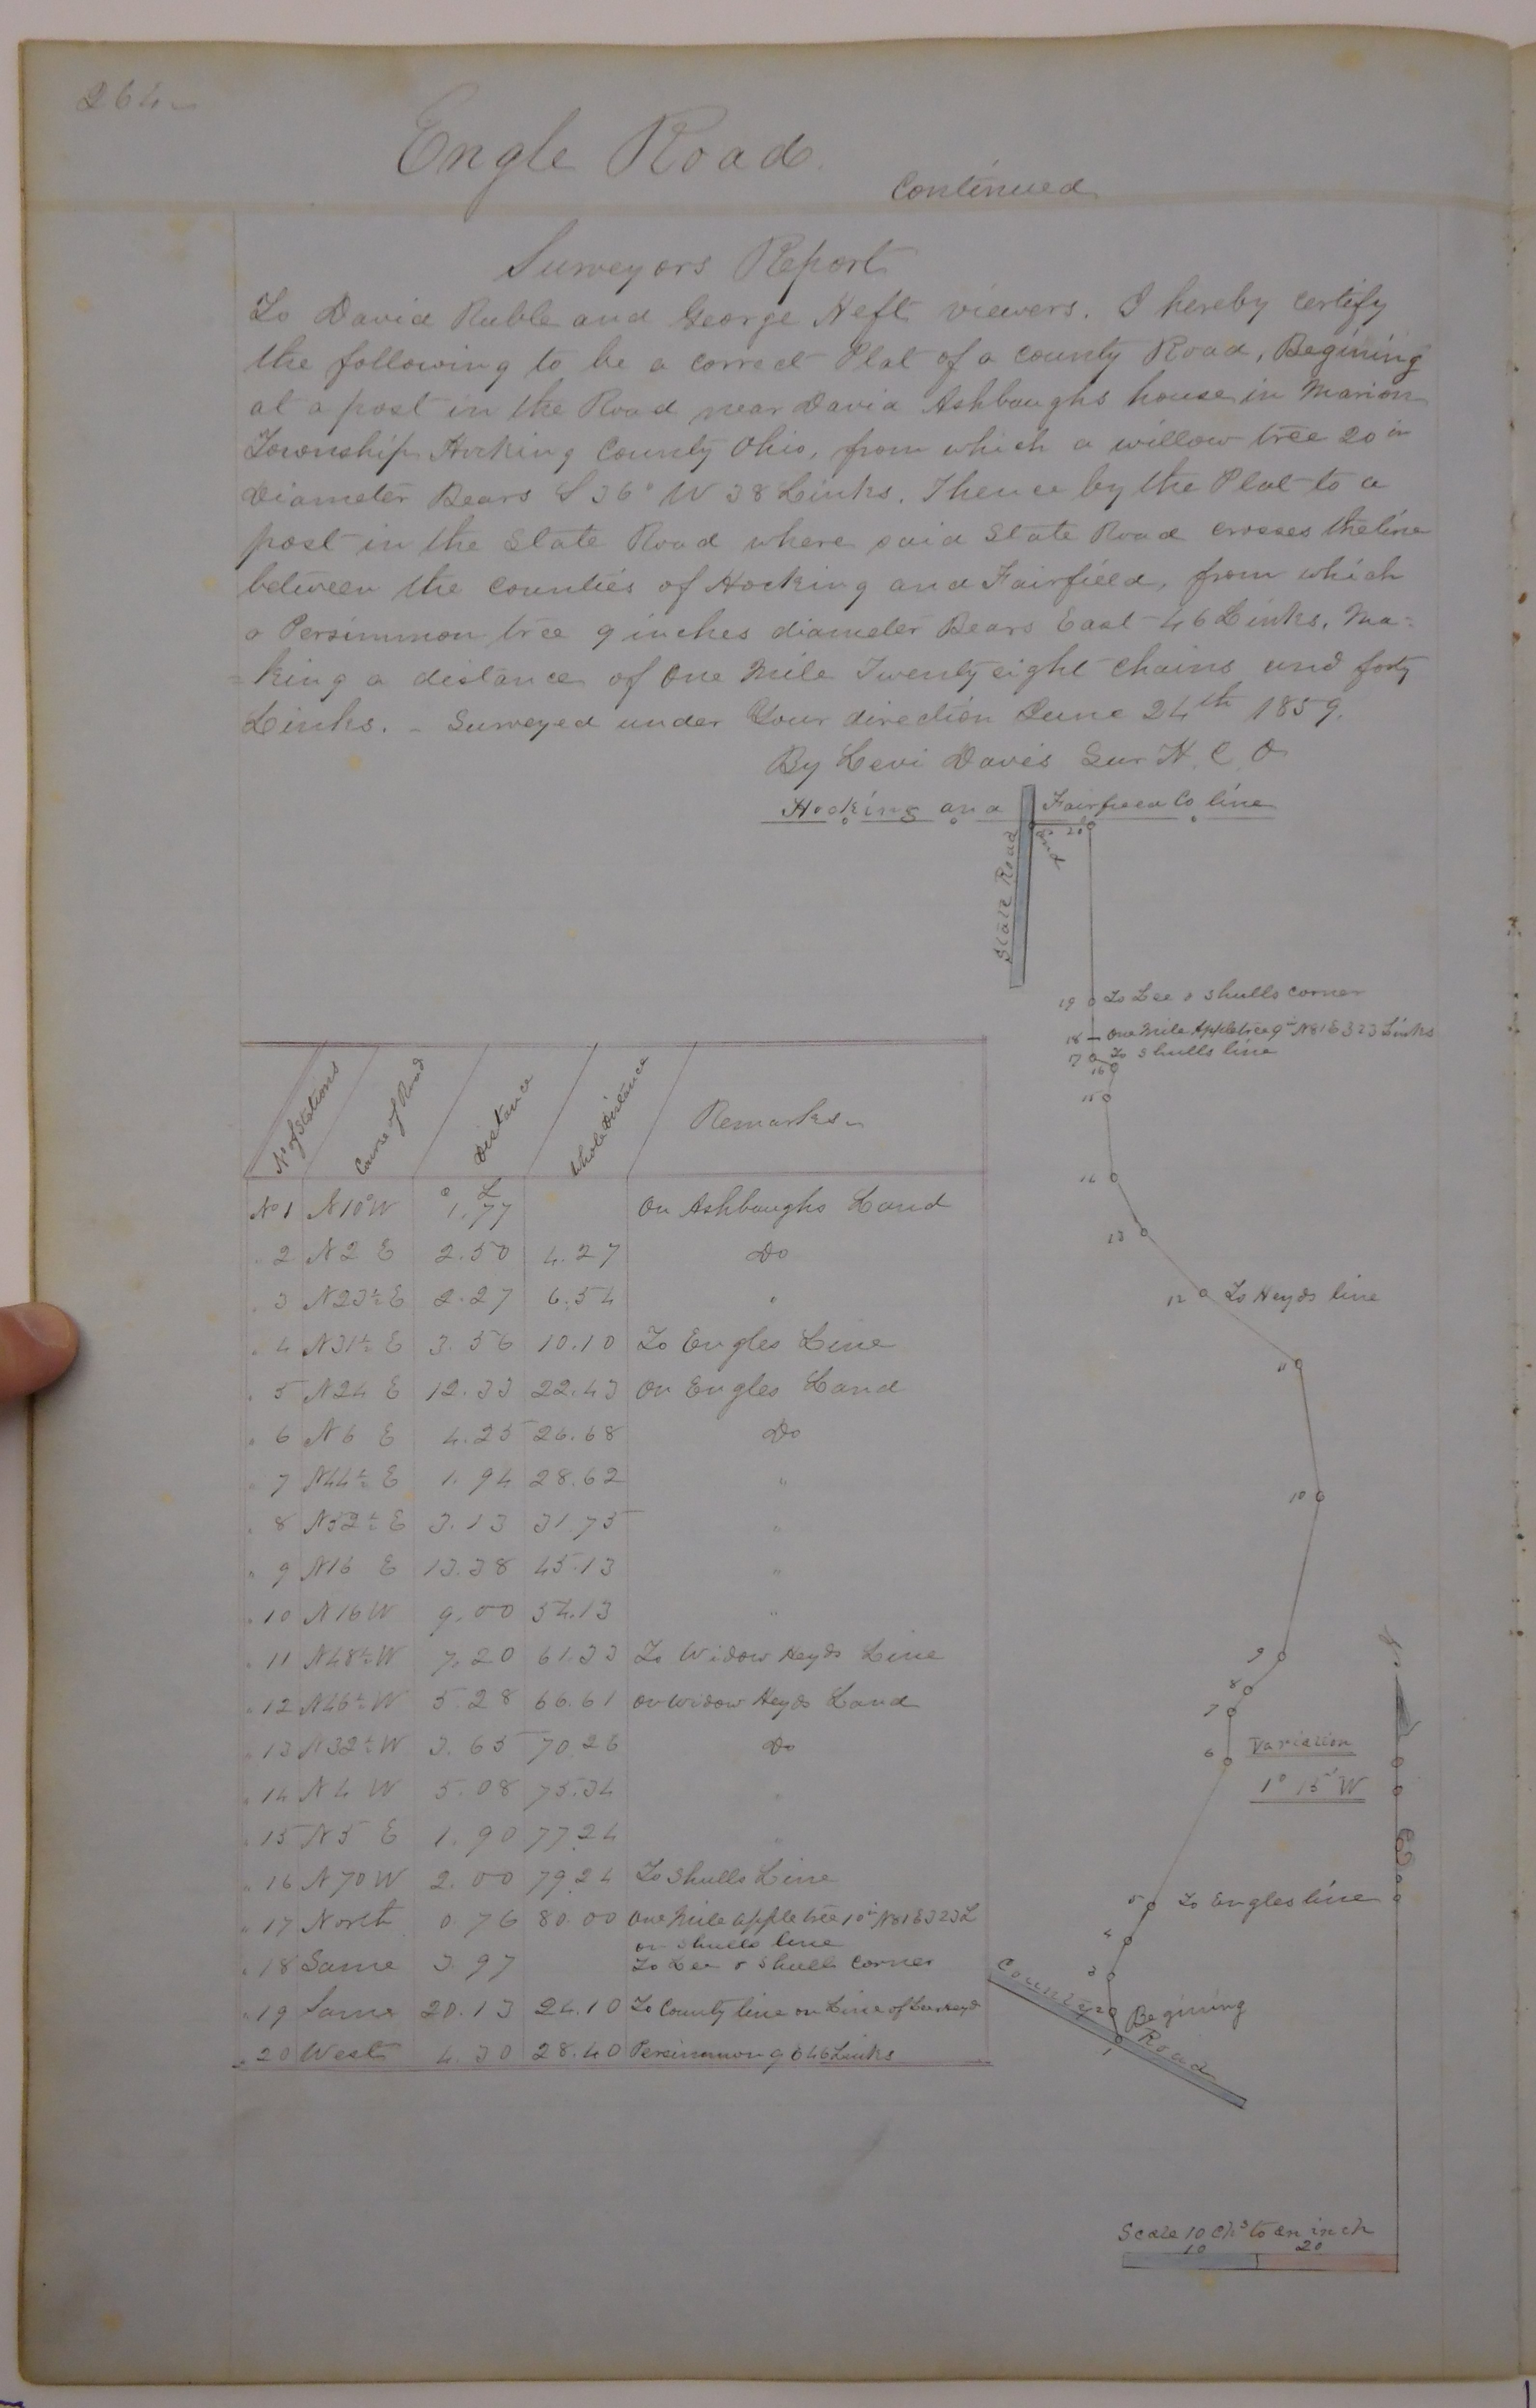 264
Engle Road.
Continued
Surveyors Report
To David Ruble and George Heft viewers. I hereby certify
the following to be a correct Plat of a county Road, Begining
at a post in the Road near David Ashbaughs house in Marion
Township Hocking County Ohio, from which a willow tree 20 in
diameter Bears S 36° W 38 Links. Thence by the Plat to a
post in the State Road where said State Road crosses the line
between the counties of Hocking and Fairfield, from which
a Persimmon tree 9 inches diameter Bears East 46 Links. Ma-
=king a distance of One Mile Twenty eight Chains and forty
Links. - Surveyed under Your direction June 24th 1859.
By Levi Davis Sur H. C. O
Hocking and Fairfield Co line
State Road
End
20
19 To Lee & Shulls corner
18 One Mile Appletree 9 in N81E 323 Links
17 To Shulls line
16
15
14
13
12 To Heyds line
11
10
9
8
7
6
Variation
1° 15' W
5 To Engles line
4
3
2
1
Begining
County Road
Scale 10 chs to an inch
10 20
No of Stations Course of Road Distance Whole Distance Remarks
C L
No 1 N10°W 1.77 On Ashbaughs Land
" 2 N2 E 2.50 4.27 Do
" 3 N23½ E 2.27 6.54 "
" 4 N31½ E 3.56 10.10 To Engles Line
" 5 N24 E 12.33 22.43 On Engles Land
" 6 N6 E 4.25 26.68 Do
" 7 N44½ E 1.94 28.62 "
" 8 N52½ E 3.13 31.75 "
" 9 N16 E 13.38 45.13 "
" 10 N16 W 9.00 54.13 "
" 11 N48½ W 7.20 61.33 To Widow Heyds Line
" 12 N46½ W 5.28 66.61 On Widow Heyds Land
" 13 N32½ W 3.65 70.26 Do
" 14 N4 W 5.08 75.34 "
" 15 N5 E 1.90 77.24 "
" 16 N70 W 2.00 79.24 To Shulls Line
" 17 North 0.76 80.00 One Mile appletree 10 in N81E 323 L
on Shulls line
" 18 Same 3.97 To Lee & Shulls Corner
" 19 Same 20.13 24.10 To County line on Line of
" 20 West 4.30 28.40 Persimmon 9 E 46 Links